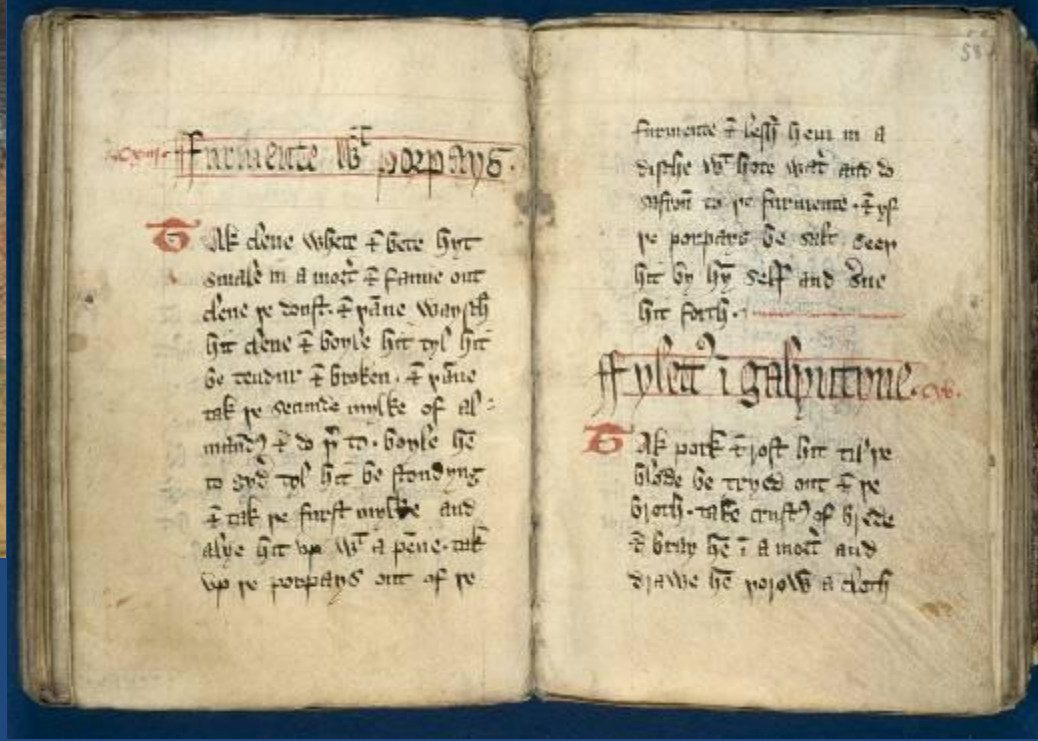 ffurmente wt porpays.
Tak clene whete & bete hyt
smale in a mort̄ & fanne out
clene þe doust. & þāne waysch
hit clene & boyle hit tyl hit
be tendur & broken. & þāne
tak þe secunde mylke of al
mand & do þ to. boyle hē
to gyd tyl hit be stondyng
& tak þe furst mylke and
alye hit up wt a pēne. tak
up þe porpays out of þe
58
furmente & lesch hem in a
disshe wt hote wat and do
safron to þe furmente. & yf
þe porpays be salt. seeþ
hit by hȳ self and sue
hit forth.
ffylett ī galyntyne. cxv.
Tak pork & rost hit til þe
blode be tryed out & þe
broth. take crust of brede
& bray hē ī a mort̄ and
drawe hē þorow a cloth